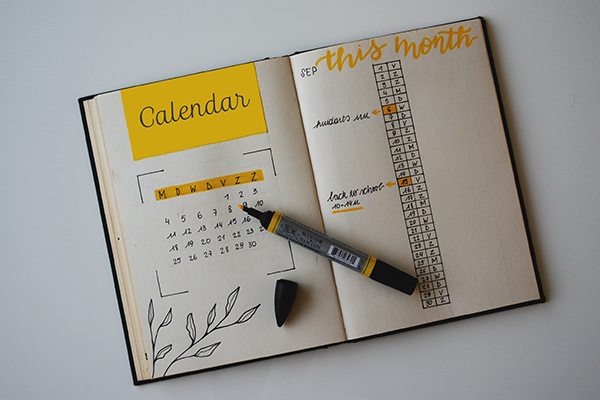 Calendar
M D W D V Z Z
1 2 3
4 5 6 7 8 9 10
11 12 13 14 15
18 19 20 21 22 23
25 26 27 28 29 30
SEP this month
1 V
2 Z
3 Z
4 M
5 D
6 W
7 D
8 V
9 Z
10 Z
11 M
12 D
13 W
14 D
15 V
16 Z
17 Z
18 M
19 D
20 W
21 D
22 V
23 Z
24 Z
25 M
26 D
27 W
28 D
29 V
30 Z
back to school
10-14u